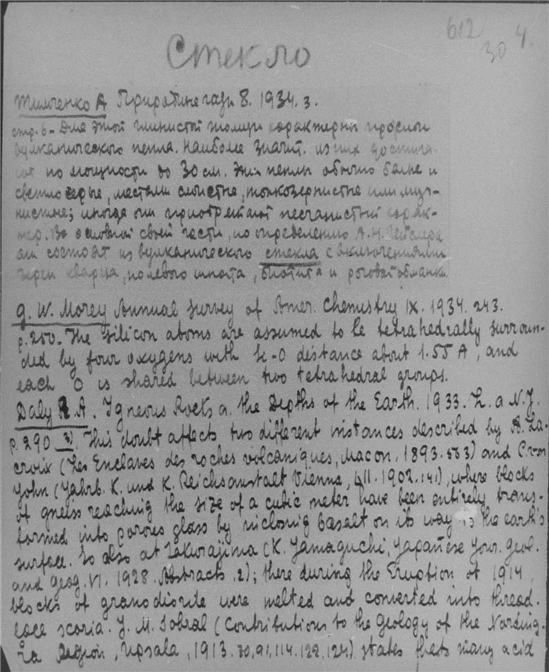 612
30 4.
Стекло
Тимченко А Природные газы 8. 1934. 3.
стр. 6 – Для этой глинистой толщи характерны прослои
вулканического пепла. Наиболее значит. из них достига-
ют по мощности до 30 см. Эти пеплы обычно белые и
светло серые, местами слоистые, тонкозернистые или муч-
нистые; иногда они приобретают песчанистый харак-
тер. Во основной своей части, по определению А. Н. Гейслера
они состоят из вулканического стекла с включениями
зерен кварца, полевого шпата, биотита и роговой обманки
G. W. Morey Annual Survey of Amer. Chemistry IX. 1934. 243.
p. 250. The silicon atoms are assumed to be tetrahedrally surroun-
ded by four oxygens with Si-O distance about 1.55 A, and
each O is shared between two tetrahedral groups.
Daly R. A. Igneous Rocks a. the Depths of the Earth. 1933. L. a N.J.
p. 390 3) This doubt affects two different instances described by A. La-
croix (Les Enclaves des roches volcaniques, Macon. 1893. 563) and C von
John (Jahrb. K. und K. Reichsanstalt Vienne, 1902. 141), where blocks
of gneiss reaching the size of a cubic meter have been entirely trans-
formed into porous glass by inclosing basalt on its way to the earth's
surface. So also at Sakurajima (K. Yamaguchi, Japanese Jour. Geol.
and Geog. VI. 1928. Abstracts. 2); there during the Eruption of 1914,
blocks of granodiorite were melted and converted into thread-
lace scoria. J. M. Sobral (Contributions to the Geology of the Nording-
ra Region, Upsala, 1913. 30, 91, 114. 122. 124) states that many acid